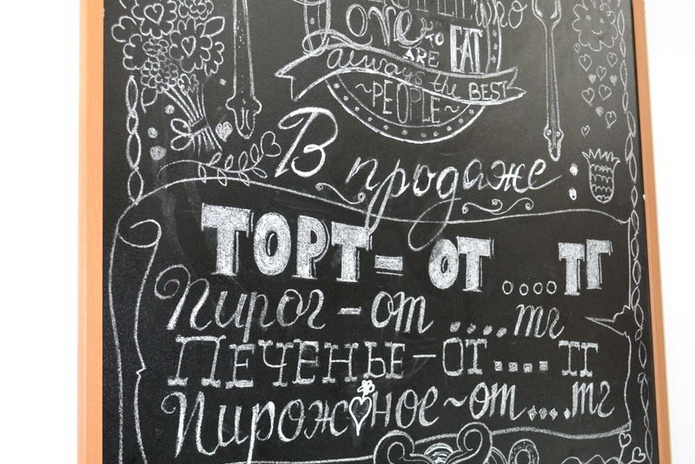 who
Love to EAT
ARE
always the BEST
~PEOPLE~
В продаже:
ТОРТ- ОТ ....ТГ
Пирог-от ....тг
ПЕЧЕНЬЕ-ОТ....ТГ
Пирожное~от...тг